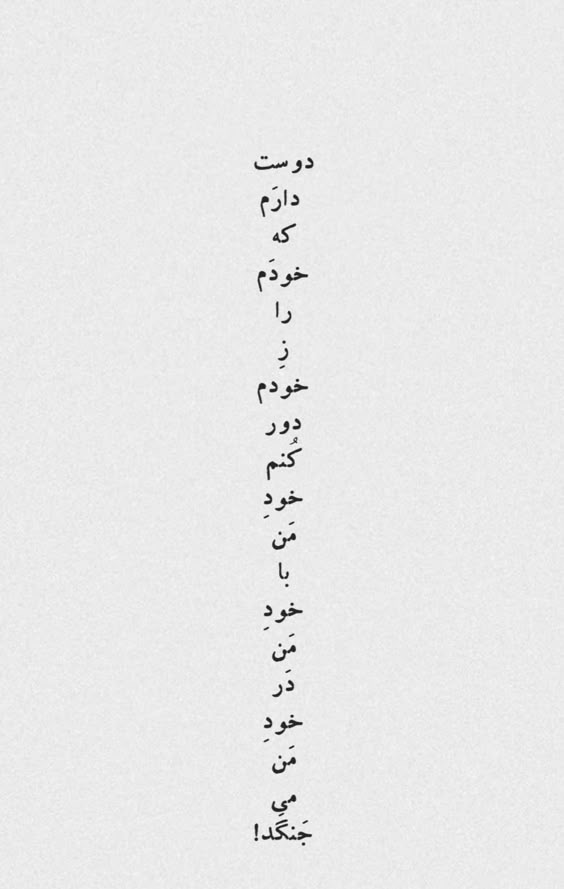 دوست
دارَم
که
خودَم
را
زِ
خودم
دور
کُنم
خودِ
مَن
با
خودِ
مَن
دَر
خودِ
مَن
می
جَنگَد!